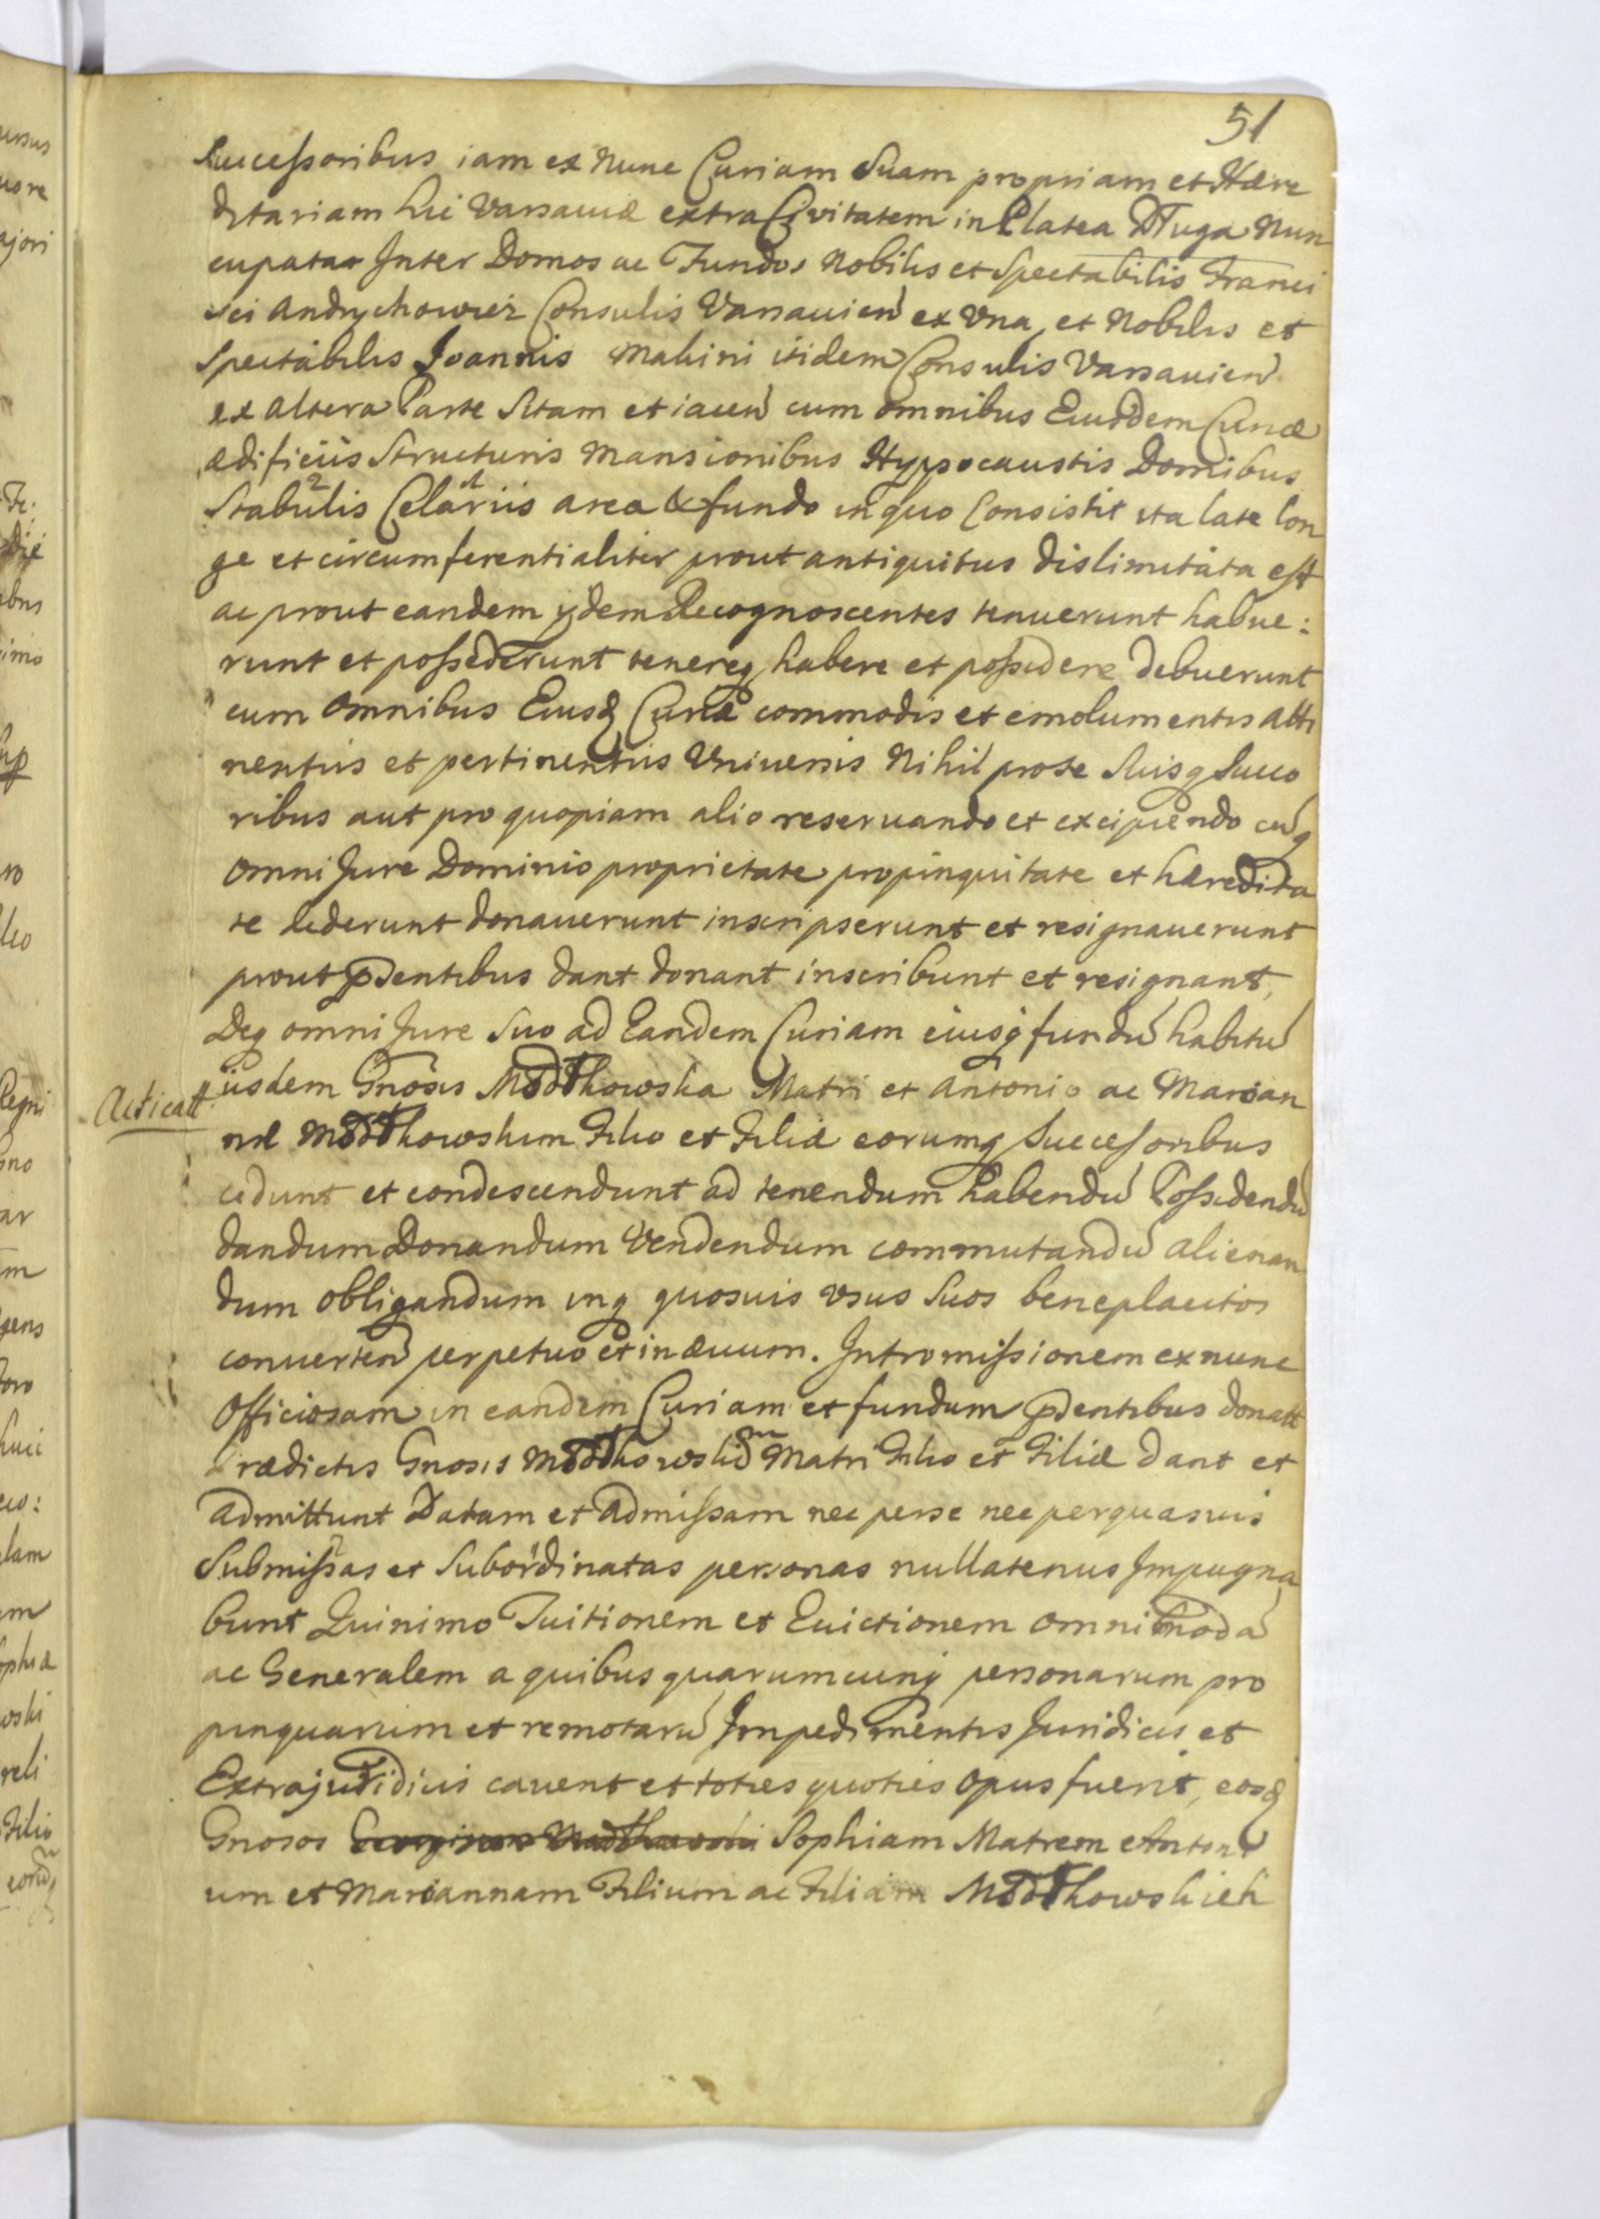 51
Successoribus iam ex Nunc Curiam Suam propriam et Hære
ditariam hic Varsauiæ extra Civitatem in Platea Długa Nun
cupata Inter Domos ac Fundos Nobilis et Spectabilis Franci
sci Andrychowicz Consulis Varsauien ex Vna, et Nobilis et
Spectabilis Joannis Malini itidem Consulis Varsauien
ex altera Parte Sitam et iacen cum omnibus Eiusdem Curiæ
ædificiis Structuris Mansionibus Hypocaustis Domibus
Stabulis Celariis area & fundo in quo Consistit ita late lon
ge et circumferentialiter prout antiquitus dislimitata est
ac prout eandem ydem Recognoscentes tenuerunt habue:
runt et possederunt tenereq habere et possidere debuerunt
cum Omnibus Eiusd Curiæ commodis et emolumentis atti
nentiis et pertinentiis Vniuersis Nihil pro se Suisq Succo
ribus aut pro quopiam alio reseruando et excipiendo cuq
Omni Jure Dominio proprietate propinquitate et hæredita
te dederunt donauerunt inscripserunt et resignauerunt
prout pdentibus dant donant inscribunt et resignant,
Deq omni Jure Suo ad Eandem Curiam eiusq fundu habitu
iisdem Gnosis Młodkowska Matri et Antonio ac Marian
Acticatt
næ Młodkowskim Filio et Filiæ eorumq Successoribus
cedunt et condescendunt ad tenendum habendu Possidendu
dandum Donandum Vendendum commutandu alienan
dum obligandum inq quosuis vsus Suos beneplacitos
conuerten perpetuo et in æuum. Intromissionem ex nunc
Officiosam in eandem Curiam et fundum pdentibus donatt
Prædictis Gnosis Młodkowskim Matri Filio et Filiæ dant et
admittunt Datam et admissam nec per se nec per quasuis
Submissas et Subordinatas personas nullatenus Impugna
bunt Quinimo Tuitionem et Euictionem omnimoda
ac Generalem a quibus quarumcunq personarum pro
pinquarum et remotaru Impedimentis Juridicis et
Extrajuridicis cauent et toties quoties opus fuerit, eosd
Gnosos Sophiam Matrem Antoni
um et Mariannam Filium ac Filiam Młodkowskich